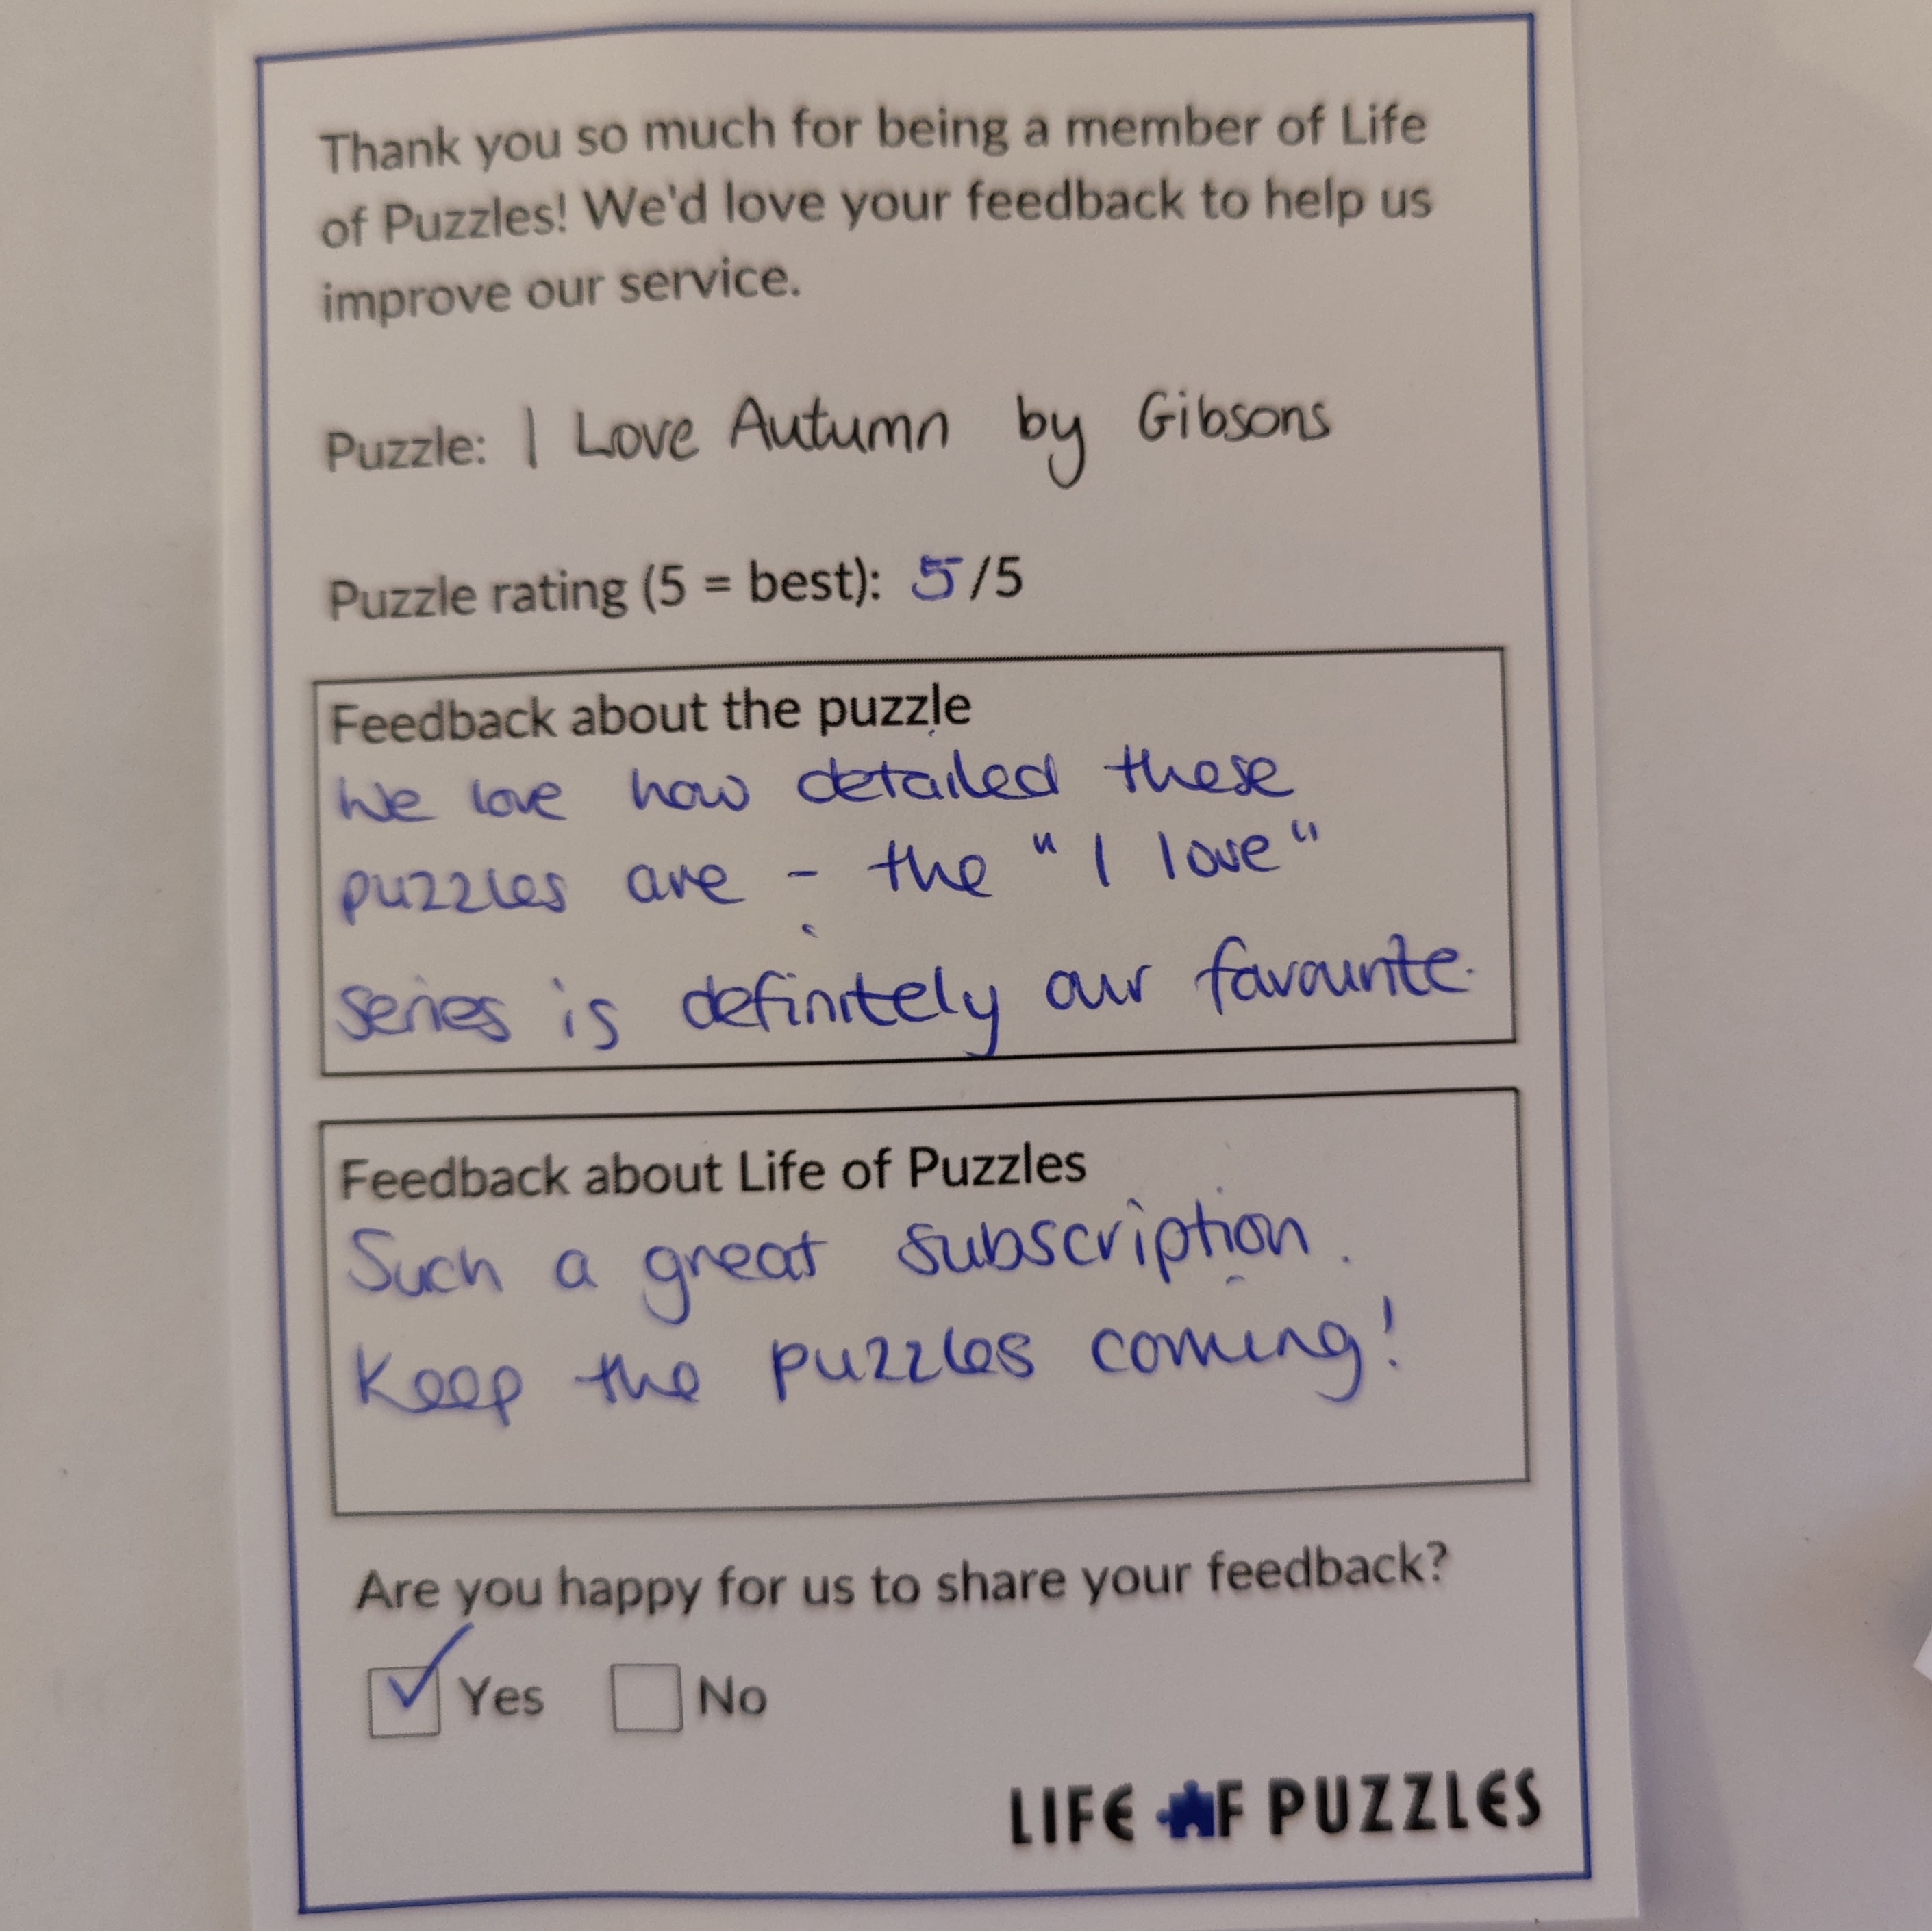 Thank you so much for being a member of Life
of Puzzles! We'd love your feedback to help us
improve our service.
Puzzle: I Love Autumn by Gibsons
Puzzle rating (5 = best): 5/5
Feedback about the puzzle
We love how detailed these
puzzles are - the "I love"
series is definitely our favourite.
Feedback about Life of Puzzles
Such a great subscription.
Keep the puzzles coming!
Are you happy for us to share your feedback?
Yes No
LIFE OF PUZZLES